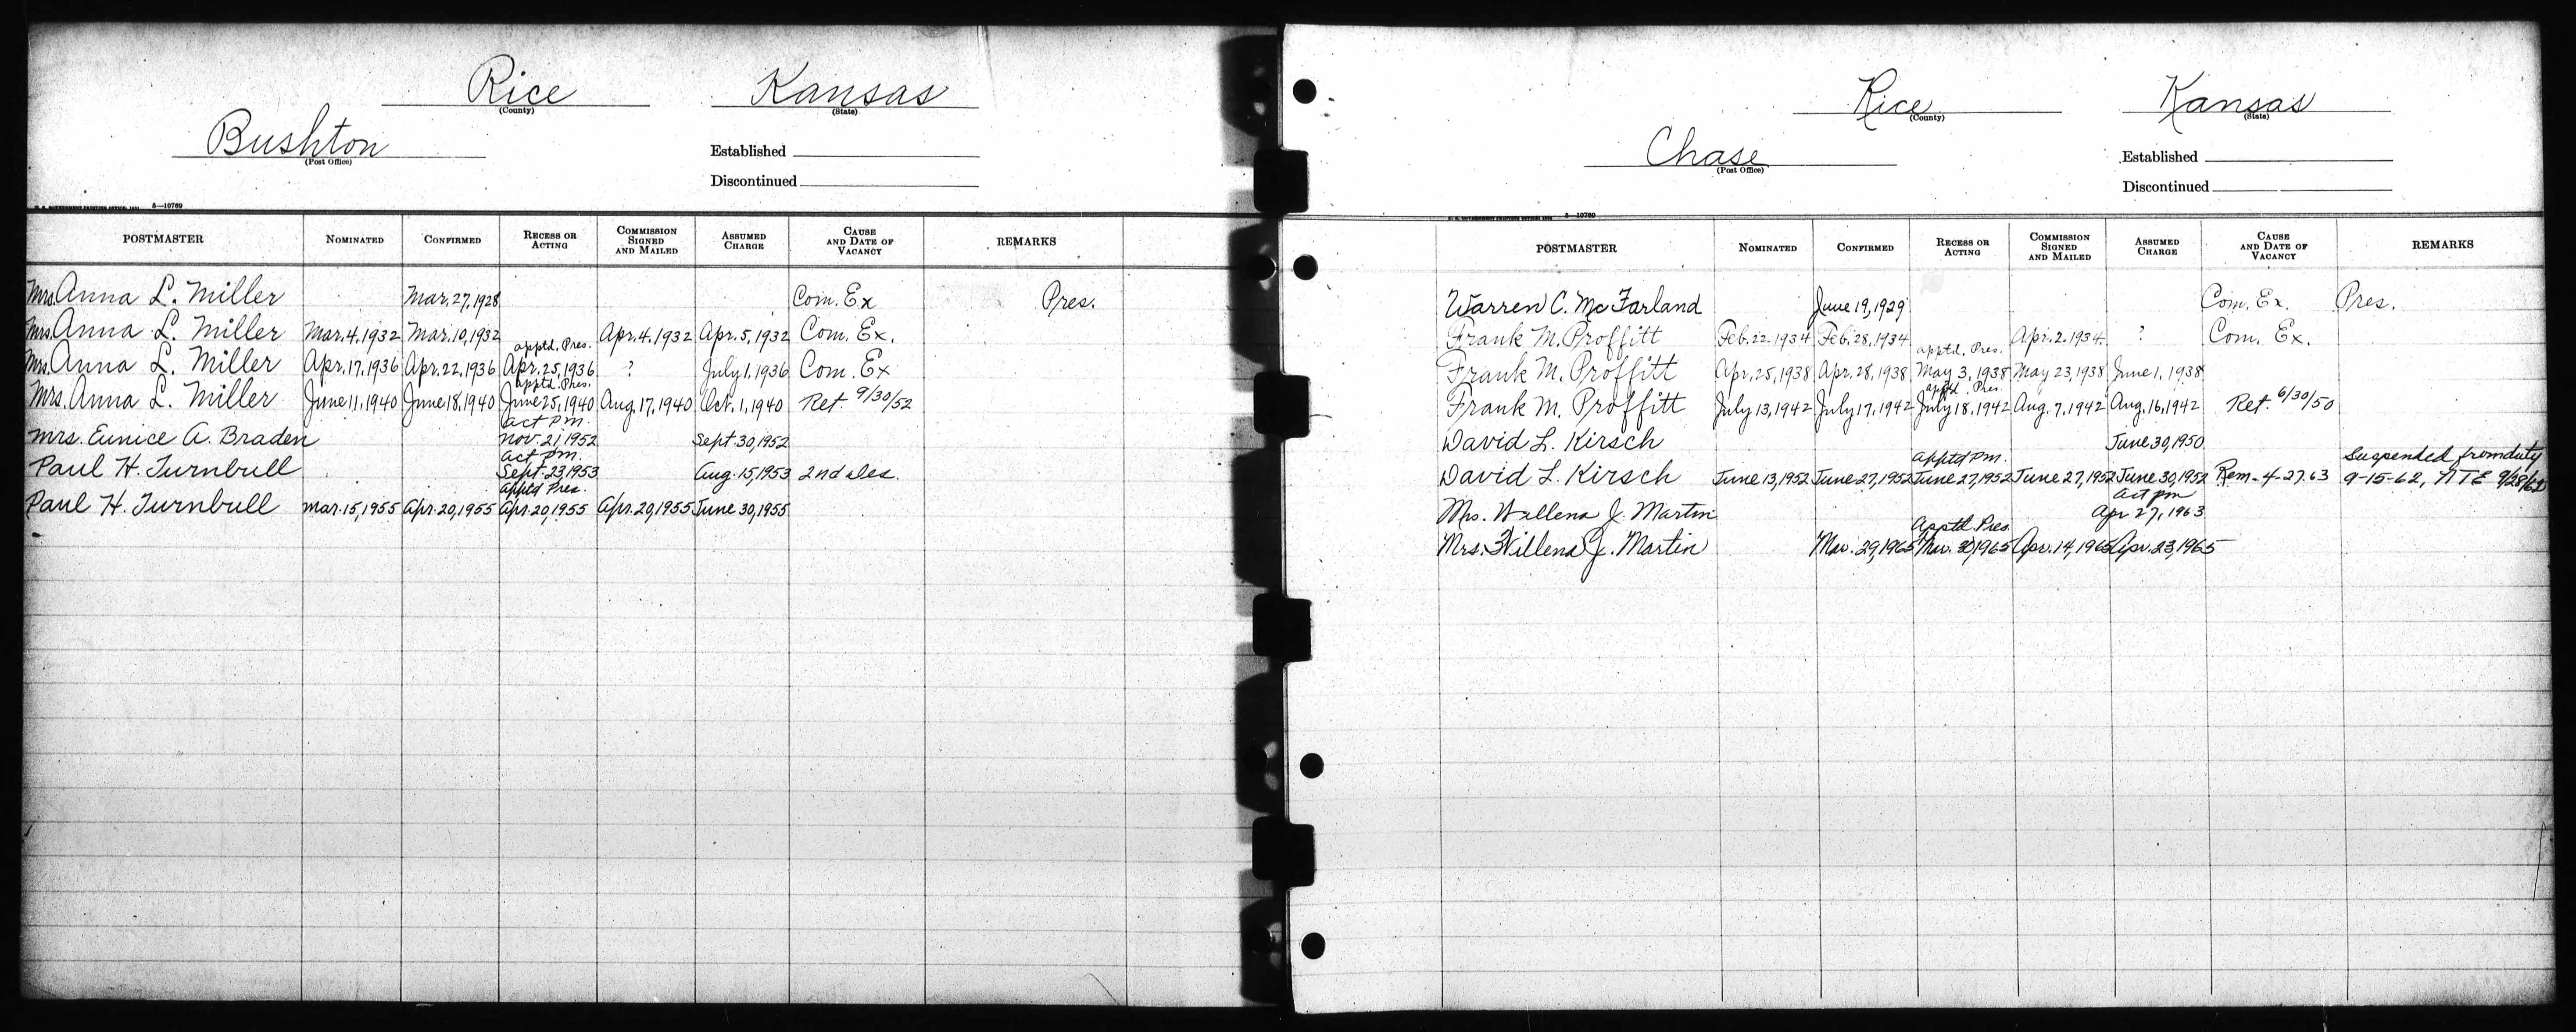 Rice Kansas
(County) (State)
Bushton
(Post Office)
Established
Discontinued
5—10769
POSTMASTER NOMINATED CONFIRMED RECESS OR ACTING COMMISSION SIGNED AND MAILED ASSUMED CHARGE CAUSE AND DATE OF VACANCY REMARKS
Mrs. Anna L. Miller Mar. 27, 1928 Com. Ex Pres.
Mrs. Anna L. Miller Mar. 4, 1932 Mar. 10, 1932 Apr. 4. 1932 Apr. 5, 1932 Com. Ex.
apptd. Pres.
Mrs. Anna L. Miller Apr. 17, 1936 Apr. 22, 1936 Apr. 25, 1936 ? July 1. 1936 Com. Ex
apptd. Pres.
Mrs. Anna L. Miller June 11, 1940 June 18, 1940 June 25, 1940 Aug. 17, 1940 Oct. 1, 1940 Ret. 9/30/52
act P.M.
Mrs. Eunice A. Braden Nov. 21, 1952 Sept. 30, 1952
act P.M.
Paul H. Turnbull Sept. 23, 1953 Aug. 15, 1953 2nd Des.
apptd Pres.
Paul H. Turnbull Mar. 15, 1955 Apr. 20, 1955 Apr. 20, 1955 Apr. 20, 1955 June 30, 1955
Rice Kansas
(County) (State)
Chase
(Post Office)
Established
Discontinued
5—10769
POSTMASTER NOMINATED CONFIRMED RECESS OR ACTING COMMISSION SIGNED AND MAILED ASSUMED CHARGE CAUSE AND DATE OF VACANCY REMARKS
Warren C. McFarland June 19, 1929 Com. Ex. Pres.
Frank M. Proffitt Feb. 22. 1934 Feb. 28, 1934 Apr. 2. 1934. ? Com. Ex.
apptd. Pres.
Frank M. Proffitt Apr. 25, 1938 Apr. 28, 1938 May 3, 1938 May 23, 1938 June 1, 1938
apptd. Pres.
Frank M. Proffitt July 13, 1942 July 17, 1942 July 18, 1942 Aug. 7, 1942 Aug. 16, 1942 Ret. 6/30/50
David L. Kirsch June 30, 1950
apptd P.M. Suspended from duty
David L. Kirsch June 13, 1952 June 27, 1952 June 27, 1952 June 27, 1952 June 30, 1952 Rem. 4-27-63 9-15-62, NTE 9/28/62
act pm
Mrs. Willena J. Martin Apr 27, 1963
Apptd Pres.
Mrs. Willena J. Martin Mar. 29, 1965 Mar. 30, 1965 Apr. 14, 1965 Apr. 23, 1965